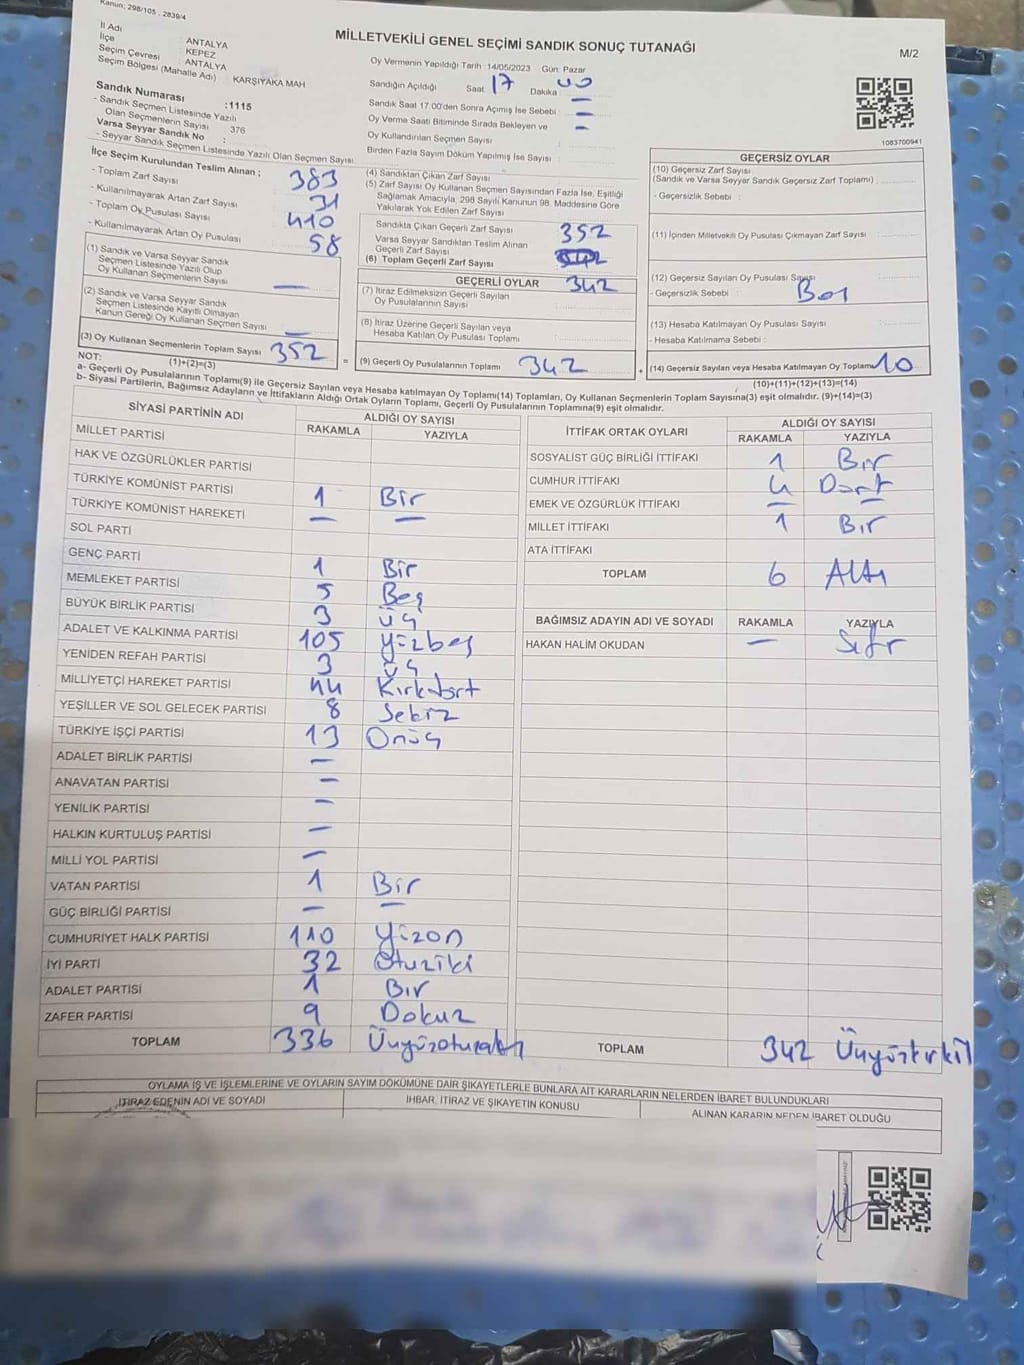 Kanun: 298/105 , 2839/4
MİLLETVEKİLİ GENEL SEÇİMİ SANDIK SONUÇ TUTANAĞI
M/2
İl Adı : ANTALYA
İlçe : KEPEZ
Seçim Çevresi : ANTALYA
Seçim Bölgesi (Mahalle Adı) : KARŞIYAKA MAH
Sandık Numarası :1115
- Sandık Seçmen Listesinde Yazılı
Olan Seçmenlerin Sayısı : 376
Varsa Seyyar Sandık No :
- Seyyar Sandık Seçmen Listesinde Yazılı Olan Seçmen Sayısı:
Oy Vermenin Yapıldığı Tarih :14/05/2023 Gün: Pazar
Sandığın Açıldığı Saat: 17 Dakika 00
Sandık Saat 17.00'den Sonra Açımış İse Sebebi : —
Oy Verme Saati Bitiminde Sırada Bekleyen ve —
Oy Kullandırılan Seçmen Sayısı :
Birden Fazla Sayım Döküm Yapılmış İse Sayısı :
1083700941
İlçe Seçim Kurulundan Teslim Alınan ;
- Toplam Zarf Sayısı 383
- Kullanılmayarak Artan Zarf Sayısı 31
- Toplam Oy Pusulası Sayısı 410
- Kullanılmayarak Artan Oy Pusulası 58
(1) Sandık ve Varsa Seyyar Sandık
Seçmen Listesinde Yazılı Olup
Oy Kullanan Seçmenlerin Sayısı —
(2) Sandık ve Varsa Seyyar Sandık
Seçmen Listesinde Kayıtlı Olmayan
Kanun Gereği Oy Kullanan Seçmen Sayısı —
(3) Oy Kullanan Seçmenlerin Toplam Sayısı 352
(1)+(2)=(3)
(4) Sandıktan Çıkan Zarf Sayısı :
(5) Zarf Sayısı Oy Kullanan Seçmen Sayısından Fazla İse, Eşitliği
Sağlamak Amacıyla, 298 Sayılı Kanunun 98. Maddesine Göre
Yakılarak Yok Edilen Zarf Sayısı
Sandıkta Çıkan Geçerli Zarf Sayısı 352
Varsa Seyyar Sandıktan Teslim Alınan
Geçerli Zarf Sayısı
(6) Toplam Geçerli Zarf Sayısı
GEÇERLİ OYLAR 342
(7) İtiraz Edilmeksizin Geçerli Sayılan
Oy Pusulalarının Sayısı
(8) İtiraz Üzerine Geçerli Sayılan veya
Hesaba Katılan Oy Pusulası Toplamı
= (9) Geçerli Oy Pusulalarının Toplamı 342 +
GEÇERSİZ OYLAR
(10) Geçersiz Zarf Sayısı
(Sandık ve Varsa Seyyar Sandık Geçersiz Zarf Toplamı) :
- Geçersizlik Sebebi :
(11) İçinden Milletvekili Oy Pusulası Çıkmayan Zarf Sayısı
(12) Geçersiz Sayılan Oy Pusulası Sayısı
- Geçersizlik Sebebi : Boş
(13) Hesaba Katılmayan Oy Pusulası Sayısı
- Hesaba Katılmama Sebebi :
(14) Geçersiz Sayılan veya Hesaba Katılmayan Oy Toplamı 10
(10)+(11)+(12)+(13)=(14)
NOT:
a- Geçerli Oy Pusulalarının Toplamı(9) ile Geçersiz Sayılan veya Hesaba katılmayan Oy Toplamı(14) Toplamları, Oy Kullanan Seçmenlerin Toplam Sayısına(3) eşit olmalıdır. (9)+(14)=(3)
b- Siyasi Partilerin, Bağımsız Adayların ve İttifakların Aldığı Ortak Oyların Toplamı, Geçerli Oy Pusulalarının Toplamına(9) eşit olmalıdır.
SİYASİ PARTİNİN ADI ALDIĞI OY SAYISI
RAKAMLA YAZIYLA
MİLLET PARTİSİ
HAK VE ÖZGÜRLÜKLER PARTİSİ
TÜRKİYE KOMÜNİST PARTİSİ 1 Bir
TÜRKİYE KOMÜNİST HAREKETİ — —
SOL PARTİ
GENÇ PARTİ 1 Bir
MEMLEKET PARTİSİ 5 Beş
BÜYÜK BİRLİK PARTİSİ 3 üç
ADALET VE KALKINMA PARTİSİ 105 yüzbeş
YENİDEN REFAH PARTİSİ 3 üç
MİLLİYETÇİ HAREKET PARTİSİ 44 Kırkdört
YEŞİLLER VE SOL GELECEK PARTİSİ 8 Sekiz
TÜRKİYE İŞÇİ PARTİSİ 13 Onüç
ADALET BİRLİK PARTİSİ —
ANAVATAN PARTİSİ —
YENİLİK PARTİSİ —
HALKIN KURTULUŞ PARTİSİ —
MİLLİ YOL PARTİSİ —
VATAN PARTİSİ 1 Bir
GÜÇ BİRLİĞİ PARTİSİ — —
CUMHURİYET HALK PARTİSİ 110 Yüzon
İYİ PARTİ 32 Otuziki
ADALET PARTİSİ 1 Bir
ZAFER PARTİSİ 9 Dokuz
TOPLAM 336 Üçyüzotuzaltı
İTTİFAK ORTAK OYLARI ALDIĞI OY SAYISI
RAKAMLA YAZIYLA
SOSYALİST GÜÇ BİRLİĞİ İTTİFAKI 1 Bir
CUMHUR İTTİFAKI 4 Dört
EMEK VE ÖZGÜRLÜK İTTİFAKI — —
MİLLET İTTİFAKI 1 Bir
ATA İTTİFAKI
TOPLAM 6 Altı
BAĞIMSIZ ADAYIN ADI VE SOYADI RAKAMLA YAZIYLA
HAKAN HALİM OKUDAN — Sıfır
TOPLAM 342 Üçyüzkırkiki
OYLAMA İŞ VE İŞLEMLERİNE VE OYLARIN SAYIM DÖKÜMÜNE DAİR ŞİKAYETLERLE BUNLARA AİT KARARLARIN NELERDEN İBARET BULUNDUKLARI
İTİRAZ EDENİN ADI VE SOYADI
İHBAR, İTİRAZ VE ŞİKAYETİN KONUSU
ALINAN KARARIN NEDEN İBARET OLDUĞU